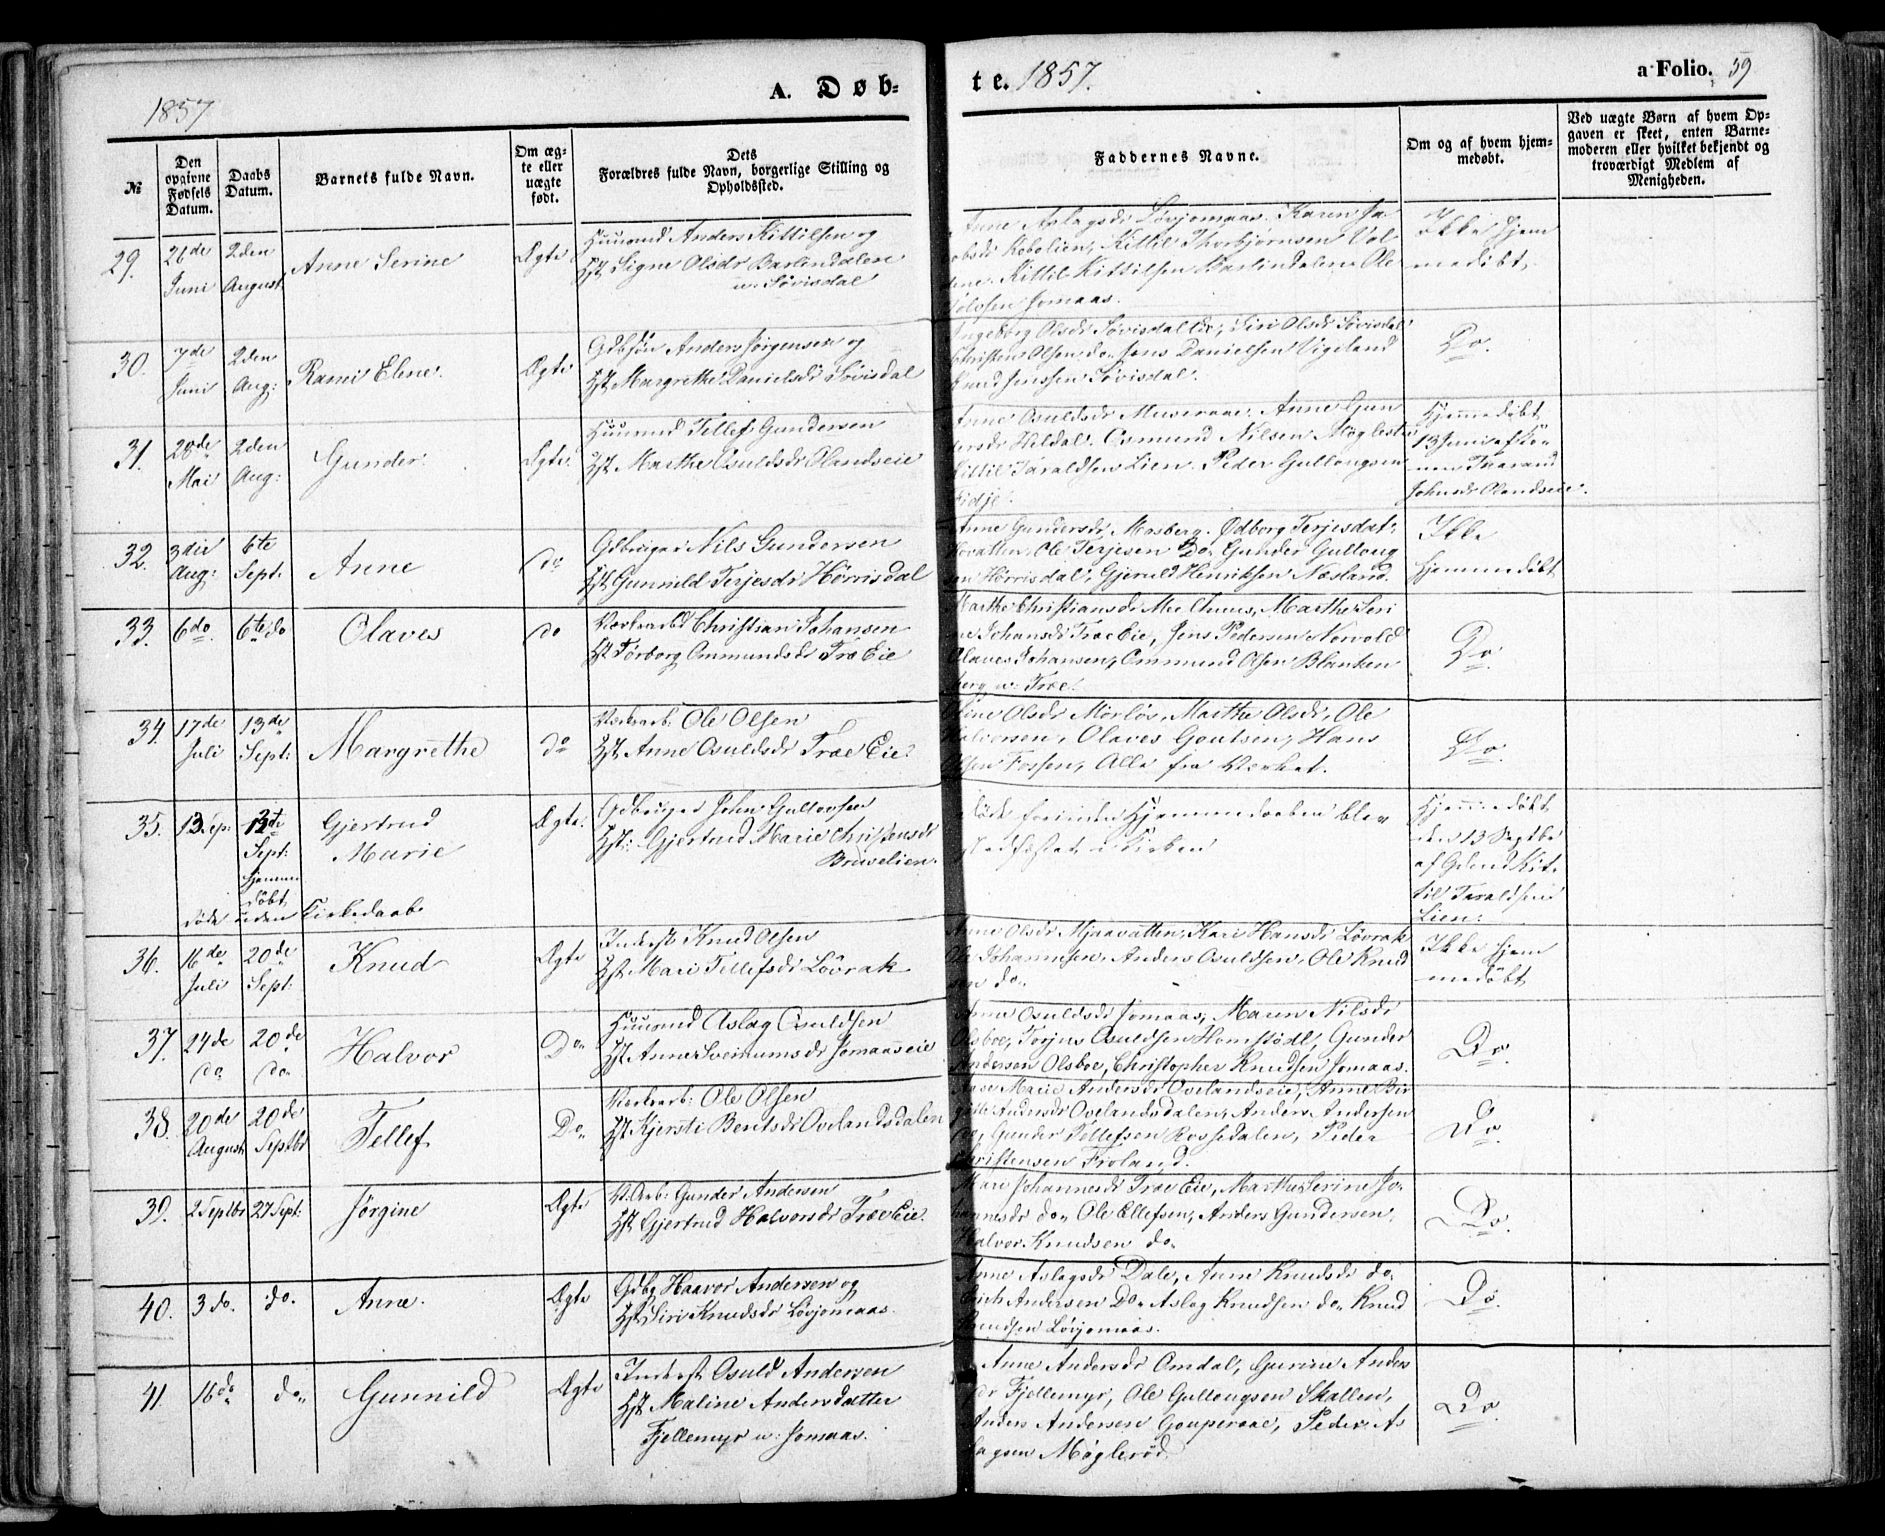 1857
A. Døb-
te. 1857.
a Folio. 59
№
Den opgivne Fødsels Datum.
Daabs Datum.
Barnets fulde Navn.
Om ægte eller uægte født.
Dets Forældres fulde Navn, borgerlige Stilling og Opholdssted.
Faddernes Navne.
Om og af hvem hjemmedøbt.
Ved uægte Børn af hvem Opgaven er skeet, enten Barnemoderen eller hvilket bekjendt og troværdigt Medlem af Menigheden.
29. 21de Juni 2den August Anne Serine Ægte
Huusmd Anders Kittilsen og
Hst. Signe Olsdr Barlindalen
u. Søvisdal
Anne Aslagsdr Løvjomaas. Karen Ja
obsdr Robolien, Kittil Thorbjørnsen Vol
dene. Kittil Kittilsen Barlindalen. Ole
Olsen Jomaas.
Ikke hjem
medøbt,
30. 7de Juni 2den Aug: Rami Elene. Ægte
Gdbr Søn Anders Jørgensen og
Hst. Margrethe Danielsdr Søvisdal
Ingeborg Olsdr Søvisdal, Siri Olsdr Søvisdal
Christen Olsen do. Jens Danielsen Vigeland
Knud Jenssen Søvisdal.
Do.
31. 28de Mai 2den Aug: Gunder. Ægte
Huusmd Tellef Gundersen
Hst Marthe Osuldsdr Olandseie
Anne Osuldsdr Museraae. Anne Gun
dersdr Heldal. Osmund Nilsen Møglestu
Kittil Taraldsen Lien. Peder Gullougsen
Fidje.
Hjemmedøbt
13 Juni af Ko
nen Tarand
Johnsdr Olandseie.
32. 3die Aug: 6te Sept. Anne do
Gdbruger Nils Gundersen
Hst Gunnild Terjesdr Hørrisdal
Anne Gundersdr Mosberg. Ødborg Terjesdat:
Hovatten, Ole Terjesen Do. Gunder Gulloug
sen Hørrisdal, Gjeruld Henriksen Næsland.
Ikke
Hjemmedøbt
33. 6 do. 6te do Olaves do
Værksarbd Christian Johansen
Hst Torborg Ommundsdr Træ Eie
Marthe Christiansdr Moe, Marthe Seri
ne Johansdr Træ Eie, Jens Pedersen Norvold
Olaves Johansen, Ommund Olsen Blanken
berg u. Træe.
Do
34. 17de Juli 13de Sept: Margrethe do
Værksarb. Ole Olsen
Hst Anne Osuldsdr Træe Eie.
Stine Olsdr Mørløs, Marthe Olsdr, Ole
Halvorsen, Olaves Goutsen, Hans
Olsen Fossen, Alle fra Værket.
Do.
35. 13 Sep: 13de Sept: hjemmedøbt Gjertrud Marie Ægte.
døde uden Kirkedaabe
Gdbruger John Gullovsen
Hst: Gjertrud Marie Christensdr
Bruvelien.
døde forinden Hjemmedaaben blev
stadfæstet i Kirken
Hjemmedøbt
den 13 Septbr
af Gdmd Kit
til Taraldsen
Lien:
36. 16de Juli 20de Sept: Knud Ægte
Inderst Knud Olsen
Hst Mari Tellefsdr Løvrak
Anne Olsdr Mjaavatten, Kari Hansdr Løvrak
Ole Johannesen, Anders Osuldsen, Ole Knud
sen do.
Ikke hjem
medøbt
37. 24de do 20de do. Halvor Do.
Huusmd Aslag Osuldsen
Hst Anne Sveinumsdr Jomaaseie
Anne Osuldsdr Jomaas, Maren Nilsdr
Olsboe, Torjus Osuldsen Homstødl, Gunder
Andersen Olsboe, Christopher Knudsen Jomaas.
Do
38. 20de August 20de Septbr Tellef Do.
Værksarb: Ole Olsen
Hst Kjersti Bentsdr Ovelandsdalen
Aase Marie Andersdr Ovelandseie, Anne Bir
gitte Andersdr Ovelandsdalen, Anders Andersen
do, Gunder Tellefsen Rossedalen, Peder
Christensen Froland.
Do
39. 2 Septbr 27 Sept: Jørgine Ægte
V. Arb: Gunder Andersen
Hst Gjertrud Halvorsdr Træe Eie.
Kari Johannesdr Træe Eie, Marthe Serine Jo
hannesdr do. Ole Ellefsen, Anders Gundersen,
Halvor Knudsen do.
Do.
40. 3 do. do. Anne. Ægte
Gdbg Haavor Andersen og
Hst Siri Knudsdr Løvjomaas.
Anne Aslagsdr Dale, Anne Knudsdr do.
Erich Andersen Do. Aslag Knudsen do. Knud
Knudsen Løvjomaas.
Do.
41. 16 do do. Gunnild Ægte
Inderst Osuld Andersen
Hst Maline Andersdatter
Fjellemyr u. Jomaas.
Anne Andersdr Omdal, Gurine Anders
dr Fjellemyr, Ole Gullougsen Skallen,
Anders Andersen Gouperaae, Peder As
lagsen Møglerød.
Do.